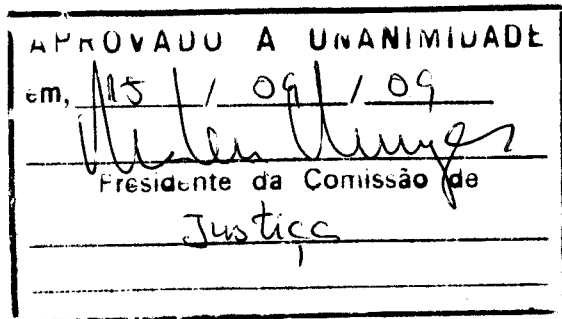 APROVADO A UNANIMIDADE
em, 15 / 09 / 09
Presidente da Comissão de
Justiça